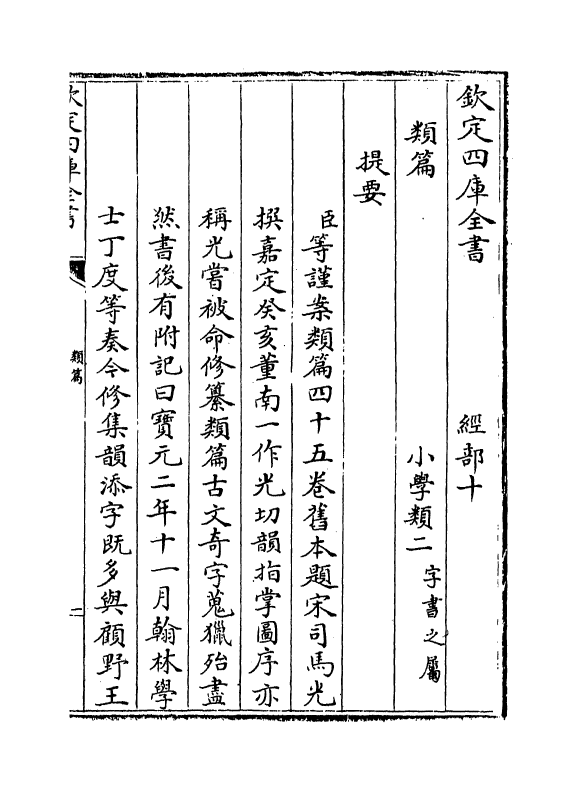 欽定四庫全書　經部十
類篇　小學類二字書之屬
提要
臣等謹案類篇四十五卷舊本題宋司馬光
撰嘉定癸亥董南一作光切韻指掌圖序亦
稱光嘗被命修纂類篇古文奇字蒐獵殆盡
然書後有附記曰寶元二年十一月翰林學
士丁度等奏今修集韻添字既多與顧野王
欽定四庫全書　類篇　二